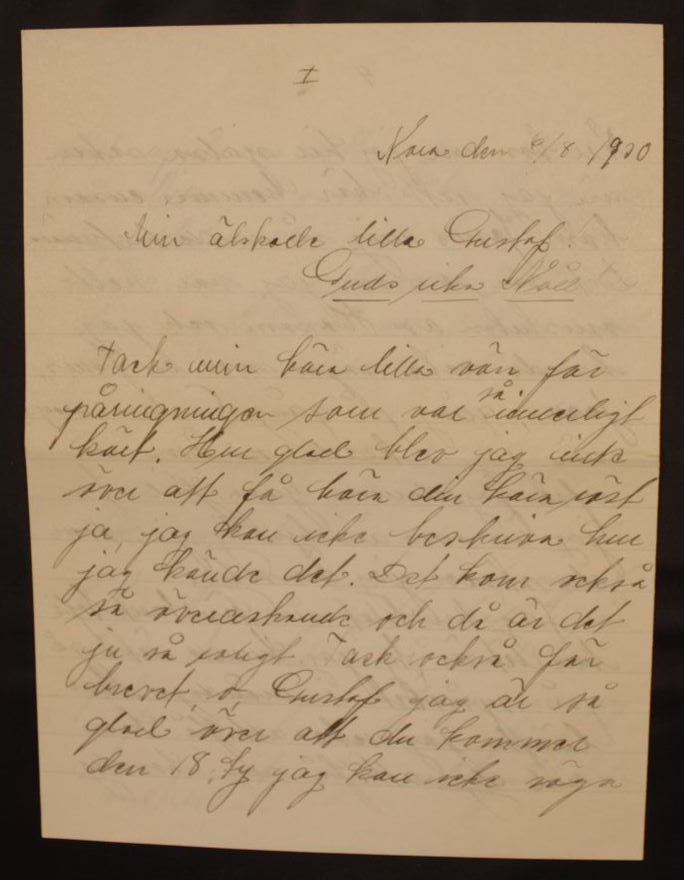 I
Nora den 6/8 1920
Min älskade lilla Gustaf!
Guds rika Nåd
Tack min kära lilla vän för
påringningen som var så innerligt
kärt. Hur glad blev jag inte
över att få höra din kära röst
ja, jag kan icke beskriva hur
jag kände det. Det kom också
så överaskande och då är det
ju så roligt Tack också för
brevet, o, Gustaf jag är så
glad över att du kommer
den 18, ty jag kan icke säga